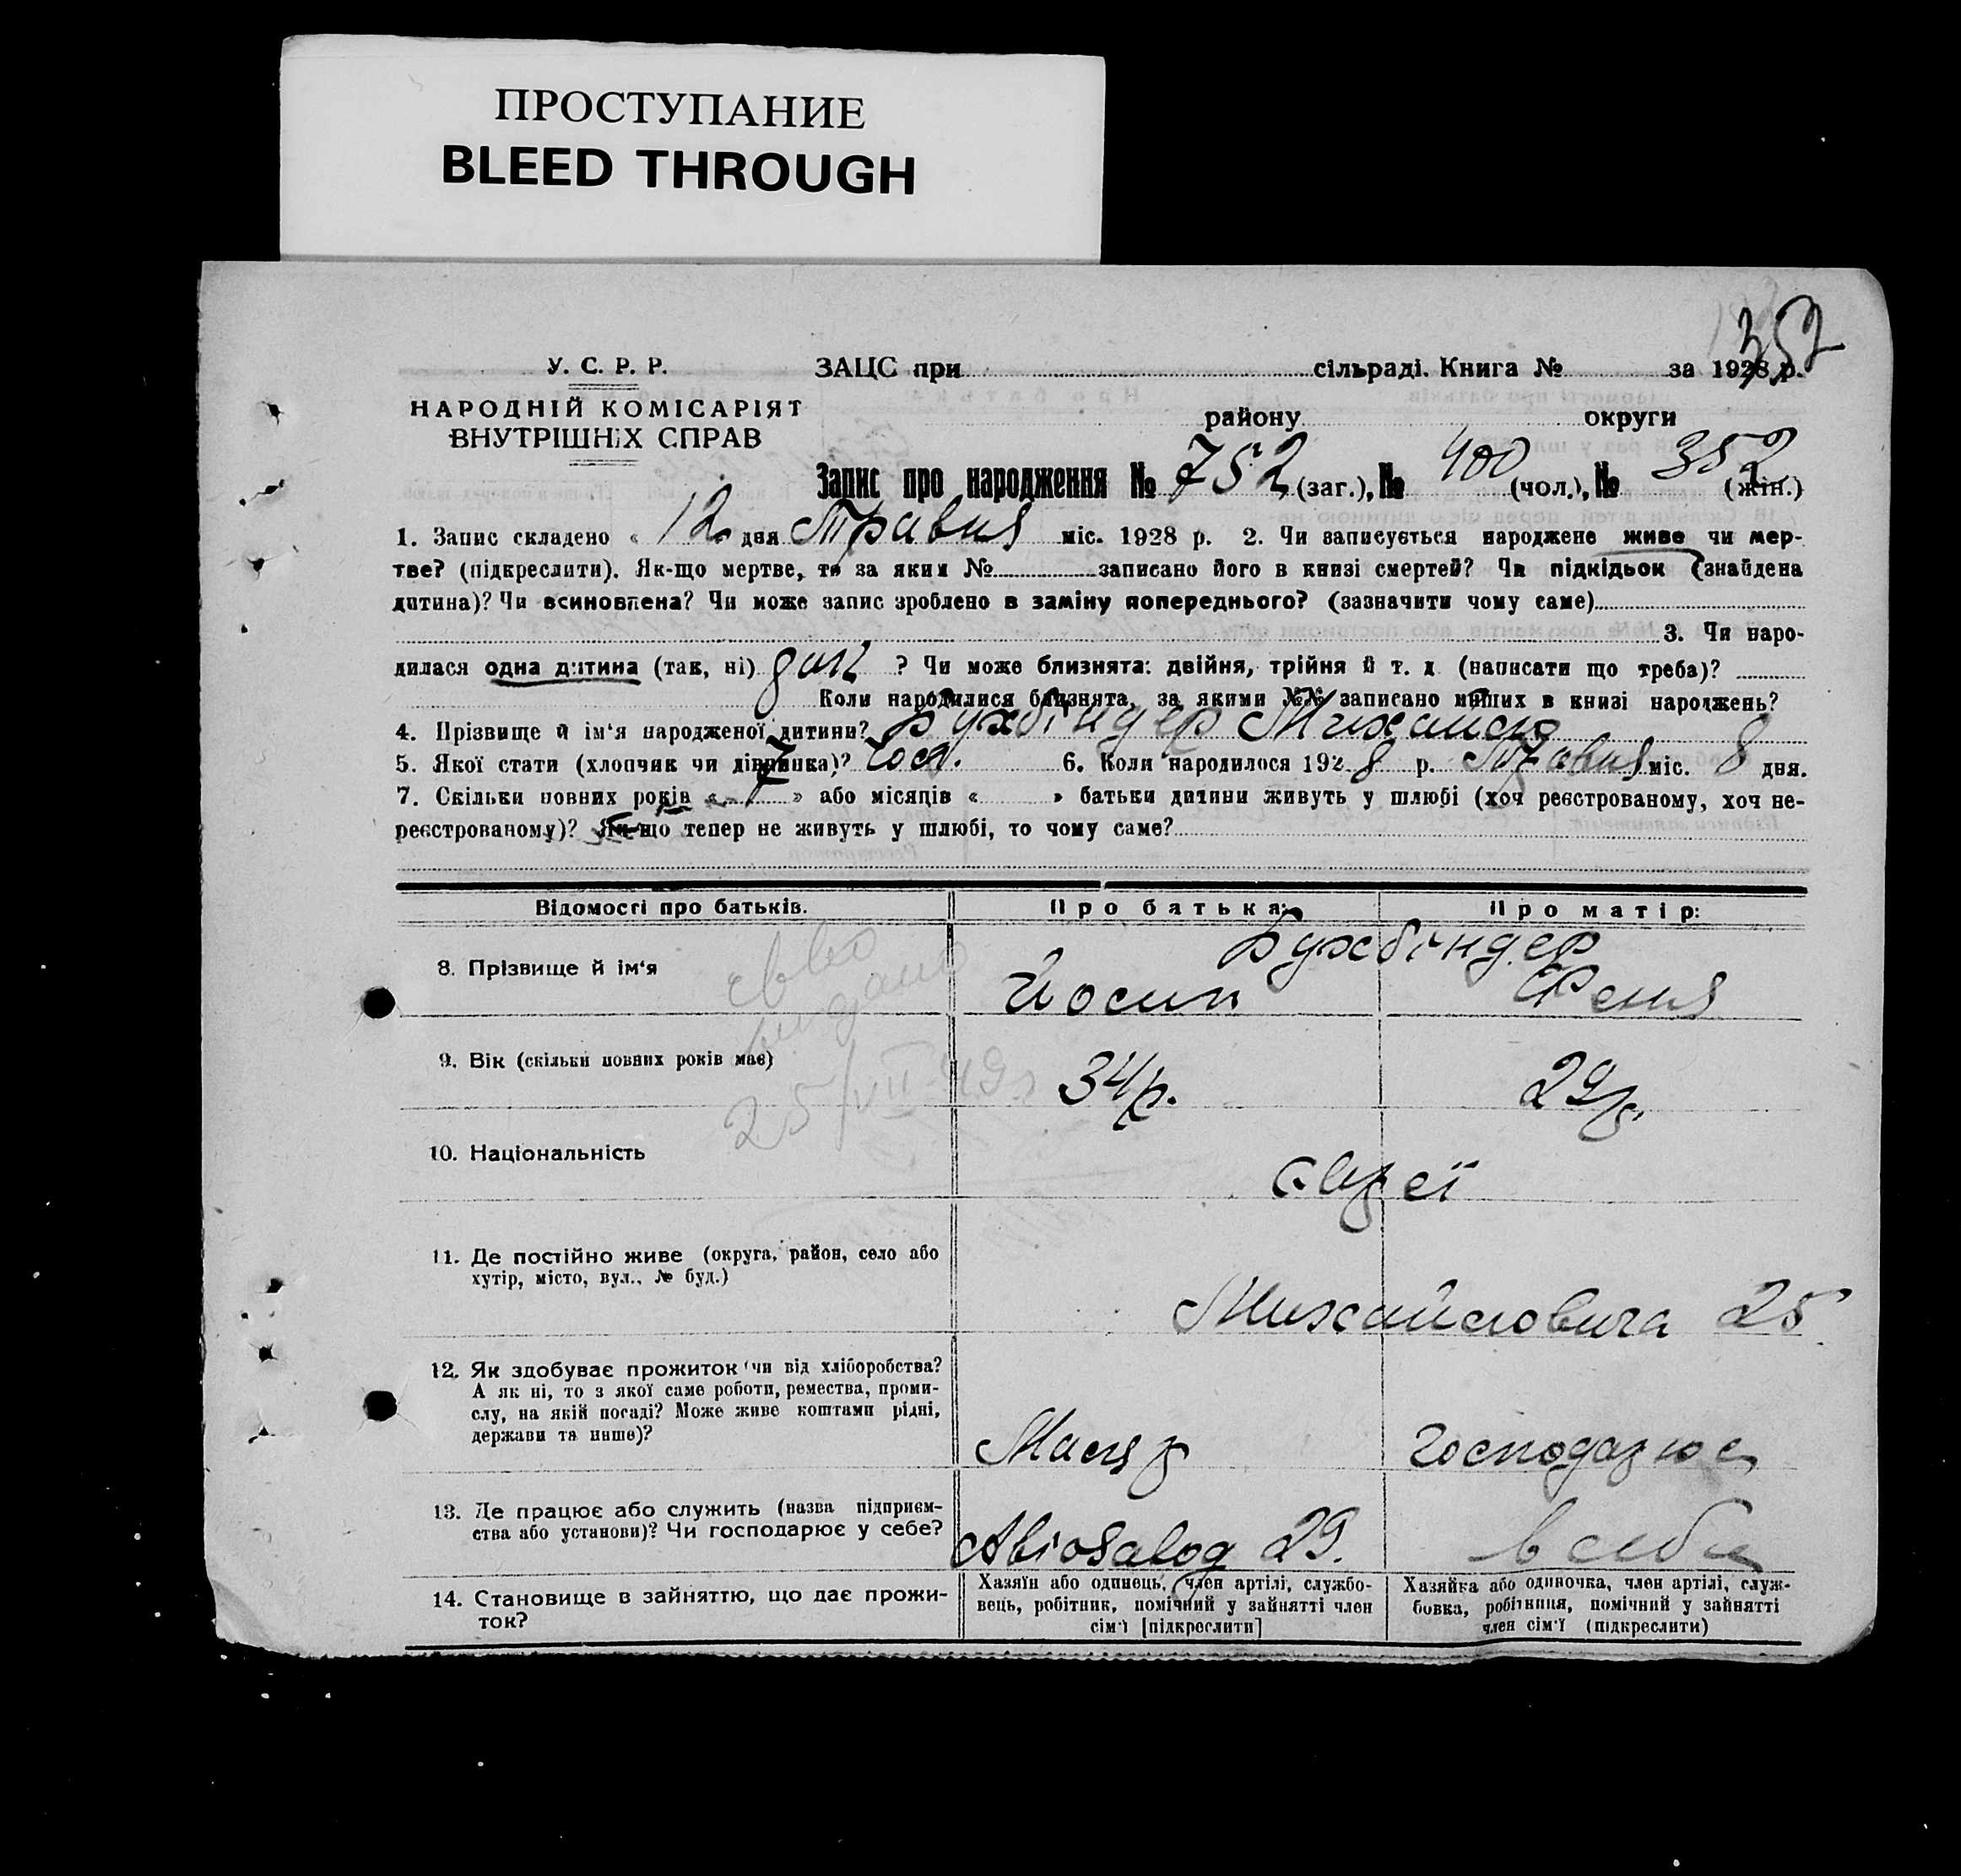 ПРОСТУПАНИЕ
BLEED THROUGH
352
У. С. Р. Р.
ЗАЦС при сільраді. Книга № за 1928 р.
НАРОДНІЙ КОМІСАРІЯТ
ВНУТРІШНІХ СПРАВ
району округи
Запис про народження № 752 (заг.), № 400 (чол.), № 352 (жін.)
1. Запис складено « 12 » дня Травня міс. 1928 р. 2. Чи записується народжене живе чи мер-
тве? (підкреслити). Як-що мертве, то за яким № записано його в книзі смертей? Чи підкідьок (знайдена
дитина)? Чи всиновлена? Чи може запис зроблено в заміну попереднього? (зазначити чому саме)
3. Чи наро-
дилася одна дитина (так, ні) ? Чи може близнята: двійня, трійня й т. д. (написати що треба)?
Коли народилися близнята, за якими №№ записано инших в книзі народжень?
4. Прізвище й ім'я народженої дитини? Бухбіндер Михайло
5. Якої стати (хлопчик чи дівчинка)? Чол. 6. Коли народилося 1928 р. Травня міс. 8 дня.
7. Скільки повних років « 7 » або місяців « » батьки дитини живуть у шлюбі (хоч реєстрованому, хоч не-
реєстрованому)? Як-що тепер не живуть у шлюбі, то чому саме?
Відомості про батьків.
Про батька:
Про матір:
Бухбіндер
8. Прізвище й ім'я
Йосип
Феня
9. Вік (скільки повних років має)
34 р.
29 р.
видано
25/VII-49 г
10. Національність
Євреї
11. Де постійно живе (округа, район, село або
хутір, місто, вул., № буд.)
Михайловича 25
12. Як здобуває прожиток (чи від хліборобства?
А як ні, то з якої саме роботи, ремества, проми-
слу, на якій посаді? Може живе коштами рідні,
держави та инше)?
Маляр
Господарює
13. Де працює або служить (назва підприєм-
ства або установи)? Чи господарює у себе?
Авіозавод 29.
в себе
14. Становище в зайняттю, що дає прожи-
ток?
Хазяїн або одинець, член артілі, службо-
вець, робітник, помічний у зайнятті член
сім'ї [підкреслити]
Хазяйка або одиночка, член артілі, служ-
бовка, робітниця, помічний у зайнятті
член сім'ї (підкреслити)